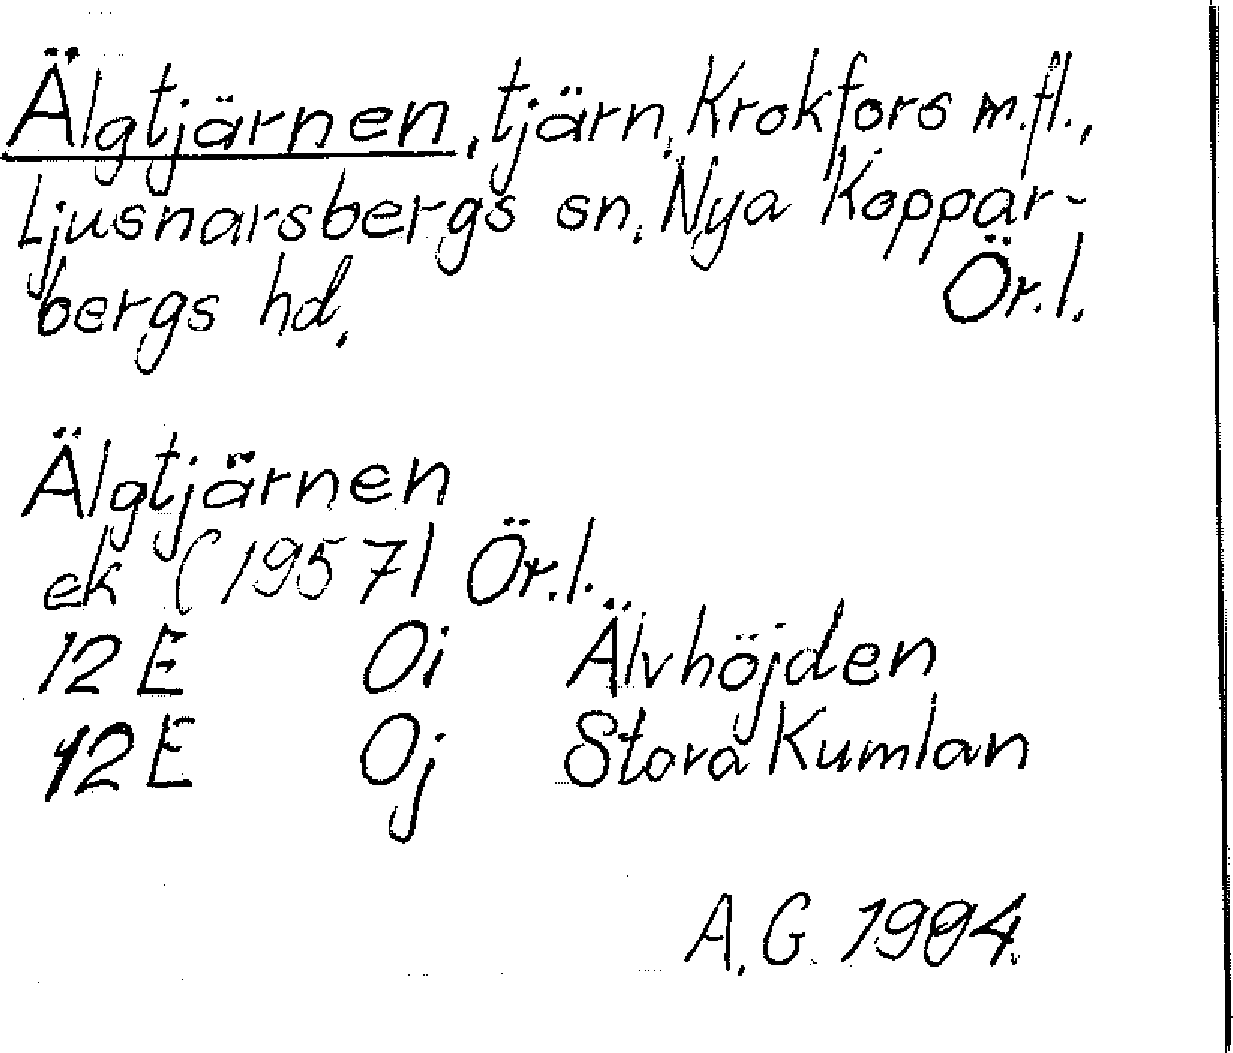 Älgtjärnen, tjärn, Krokfors m.fl.,
Ljusnarsbergs sn, Nya Koppar-
bergs hd. Ör.l.
Älgtjärnen
ek (1957) Ör.l.
12 E 0i Älvhöjden
12 E 0j Stora Kumlan
A.G. 1994.